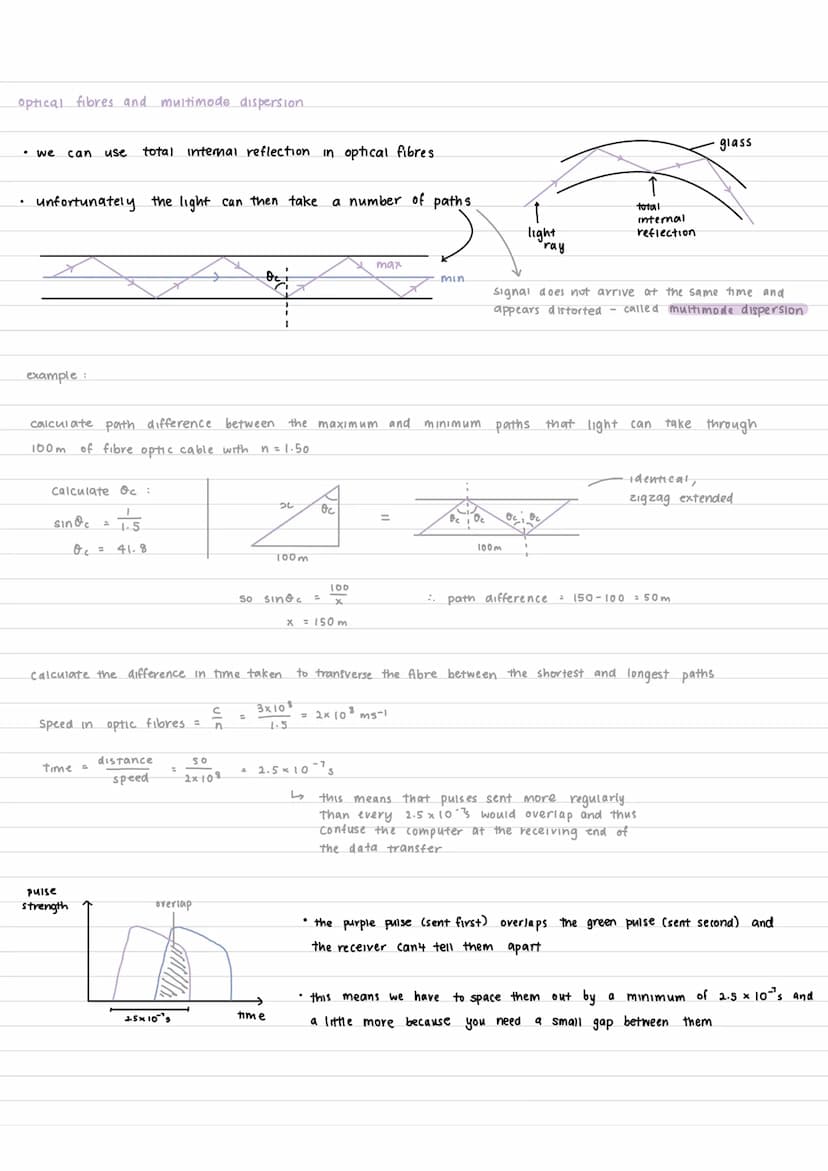 optical fibres and multimode dispersion
• we can use total internal reflection in optical fibres
glass
• unfortunately the light can then take a number of paths
total
internal
reflection
light
ray
max
θc
min
signal does not arrive at the same time and
appears distorted – called multimode dispersion
example :
calculate path difference between the maximum and minimum paths that light can take through
100m of fibre optic cable with n = 1.50
calculate θc :
sinθc = 1/1.5
θc = 41.8
x
θc
100m
=
θc θc θc θc
100m
identical,
zigzag extended
so sinθc = 100/x
x = 150m
∴ path difference = 150-100 = 50m
calculate the difference in time taken to transverse the fibre between the shortest and longest paths
speed in optic fibres = c/n = 3x10⁸/1.5 = 2x10⁸ ms⁻¹
time = distance/speed = 50/2x10⁸ = 2.5x10⁻⁷s
↳ this means that pulses sent more regularly
than every 2.5x10⁻⁷s would overlap and thus
confuse the computer at the receiving end of
the data transfer
pulse
strength
overlap
2.5x10⁻⁷s
time
• the purple pulse (sent first) overlaps the green pulse (sent second) and
the receiver can't tell them apart
• this means we have to space them out by a minimum of 2.5 x 10⁻⁷s and
a little more because you need a small gap between them